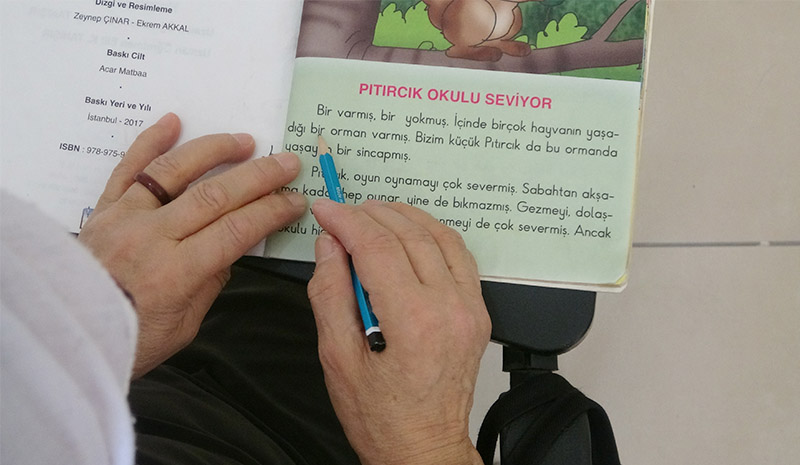 Dizgi ve Resimleme
Zeynep ÇINAR - Ekrem AKKAL
Baskı Cilt
Acar Matbaa
Baskı Yeri ve Yılı
İstanbul - 2017
ISBN : 978-975-9
PITIRCIK OKULU SEVİYOR
Bir varmış, bir yokmuş. İçinde birçok hayvanın yaşa-
dığı bir orman varmış. Bizim küçük Pıtırcık da bu ormanda
bir sincapmış.
oyun oynamayı çok severmiş. Sabahtan akşa-
ma hep oynar, yine de bıkmazmış. Gezmeyi, dolaş-
de çok severmiş. Ancak
okulu